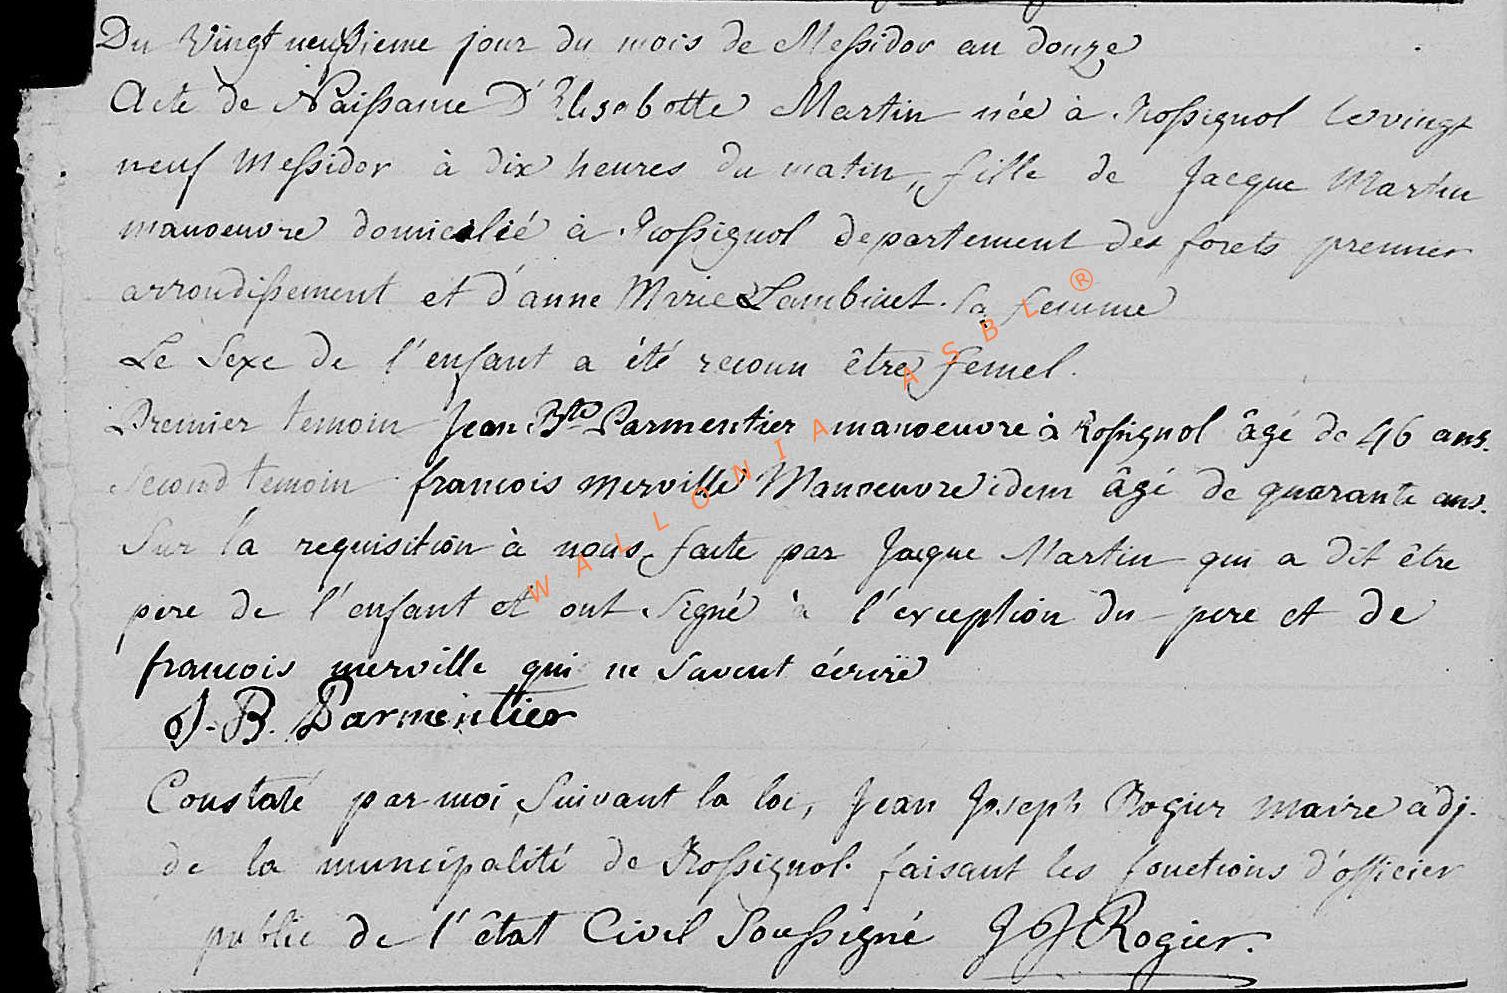 Du Vingt neufvieme jour du mois de Messidor an douze
Acte de Naissance D'Elisabette Martin née à Rossignol le vingt
neuf Messidor à dix heures du matin, fille de Jacque Martin
manoeuvre domicilié à Rossignol departement des forets premier
arrondissement et d'anne Marie Lambinet sa femme
Le Sexe de l'enfant a été reconu être femel.
Premier temoin Jean Bte Parmentier manoeuvre à Rossignol âgé de 46 ans.
Second temoin francois merville Manoeuvre idem âgé de quarante ans.
Sur la requisition à nous faite par Jacque Martin qui a dit être
pere de l'enfant et ont signé à l'exception du pere et de
francois merville qui ne savent écrire
J. B. Parmentier
Constaté par moi Suivant la loi, Jean Joseph Rogier maire adj.
de la municipalité de Rossignol faisant les fonctions d'officier
public de l'état Civil Soussigné J J Rogier.
WALLONIA ASBL ®